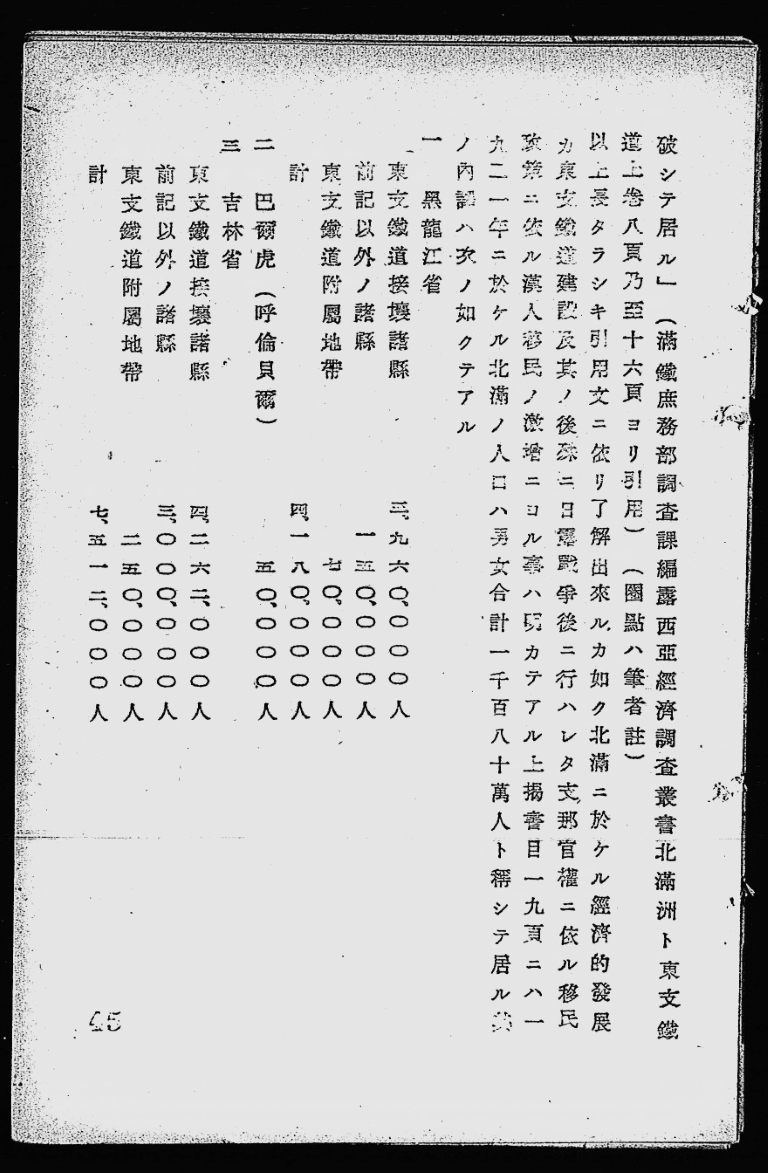 破シテ居ル」（滿鐵庶務部調査課編露西亞經濟調査叢書北滿洲ト東支鐵
道上卷八頁乃至十六頁ヨリ引用）（圈點ハ筆者註）
以上長タラシキ引用文ニ依リ了解出來ルカ如ク北滿ニ於ケル經濟的發展
カ東支鐵道建設及其ノ後殊ニ日露戰爭後ニ行ハレタ支那官權ニ依ル移民
政策ニ依ル漢人移民ノ激增ニヨル事ハ明カテアル上揭書目一九頁ニハ一
九二一年ニ於ケル北滿ノ人口ハ男女合計一千百八十萬人ト稱シテ居ル其
ノ內譯ハ次ノ如クテアル
一　黑龍江省
東支鐵道接壤諸縣　三、九六〇、〇〇〇人
前記以外ノ諸縣　一五〇、〇〇〇人
東支鐵道附屬地帶　七〇、〇〇〇人
計　四、一八〇、〇〇〇人
二　巴爾虎（呼倫貝爾）　五〇、〇〇〇人
三　吉林省
東支鐵道接壤諸縣　四、二六二、〇〇〇人
前記以外ノ諸縣　三、〇〇〇、〇〇〇人
東支鐵道附屬地帶　二五〇、〇〇〇人
計　七、五一二、〇〇〇人
45